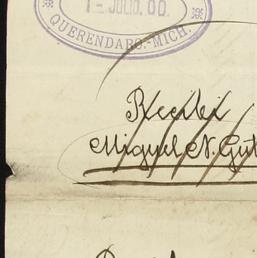 1 - JULIO. 00.
QUERENDARO.-MICH.
Recibi
Miguel N. Gut